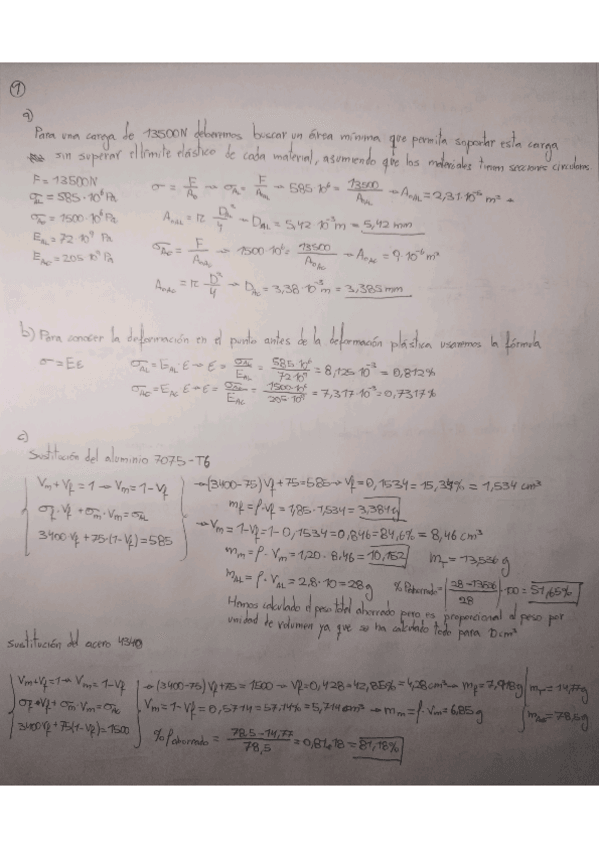 ①
a)
Para una carga de 13500N deberemos buscar un área mínima que permita soportar esta carga
sin superar el límite elástico de cada material, asumiendo que los materiales tienen secciones circulares
F = 13500N
σAL = 585·10⁶ Pa
σAC = 1500·10⁶ Pa
EAL = 72·10⁹ Pa
EAC = 205·10⁹ Pa
σ = F/A₀ → σAL = F/A₀AL → 585·10⁶ = 13500/A₀AL → A₀AL = 2,31·10⁻⁵ m²
A₀AL = π D²/4 → DAL = 5,42·10⁻³ m = 5,42 mm
σAC = F/A₀AC → 1500·10⁶ = 13500/A₀AC → A₀AC = 9·10⁻⁶ m²
A₀AC = π D²/4 → DAC = 3,38·10⁻³ m = 3,385 mm
b) Para conocer la deformación en el punto antes de la deformación plástica usaremos la fórmula
σ = Eε
σAL = EAL·ε → ε = σAL/EAL = 585·10⁶/72·10⁹ = 8,125·10⁻³ = 0,812%
σAC = EAC·ε → ε = σAC/EAC = 1500·10⁶/205·10⁹ = 7,317·10⁻³ = 0,7317%
c)
Sustitución del aluminio 7075-T6
Vm + Vf = 1 → Vm = 1 - Vf
σf·Vf + σm·Vm = σAL
3400Vf + 75·(1-Vf) = 585
→ (3400-75)Vf + 75 = 585 → Vf = 0,1534 = 15,34% = 1,534 cm³
mf = ρ·Vf = 1,85·1,534 = 3,384g
→ Vm = 1-Vf = 1-0,1534 = 0,846 = 84,6% = 8,46 cm³
mm = ρ·Vm = 1,20·8,46 = 10,152 mT = 13,536 g
mAL = ρ·VAL = 2,8·10 = 28g %Pahorrado = |28-13,536/28|·100 = 51,65%
Hemos calculado el peso total ahorrado pero es proporcional al peso por
unidad de volumen ya que se ha calculado todo para 10cm³
sustitución del acero 4340
Vm + Vf = 1 → Vm = 1-Vf
σf·Vf + σm·Vm = σAC
3400Vf + 75(1-Vf) = 1500
→ (3400-75)Vf + 75 = 1500 → Vf = 0,428 = 42,85% = 4,28 cm³ → mf = 7,918g
Vm = 1-Vf = 0,5714 = 57,14% = 5,714 cm³ → mm = ρ·Vm = 6,85g
mT = 14,77g
mAC = 78,5g
%Pahorrado = 78,5-14,77/78,5 = 0,8118 = 81,18%